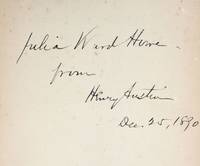 Julia Ward Howe
from
Henry Austin
Dec. 25, 1890